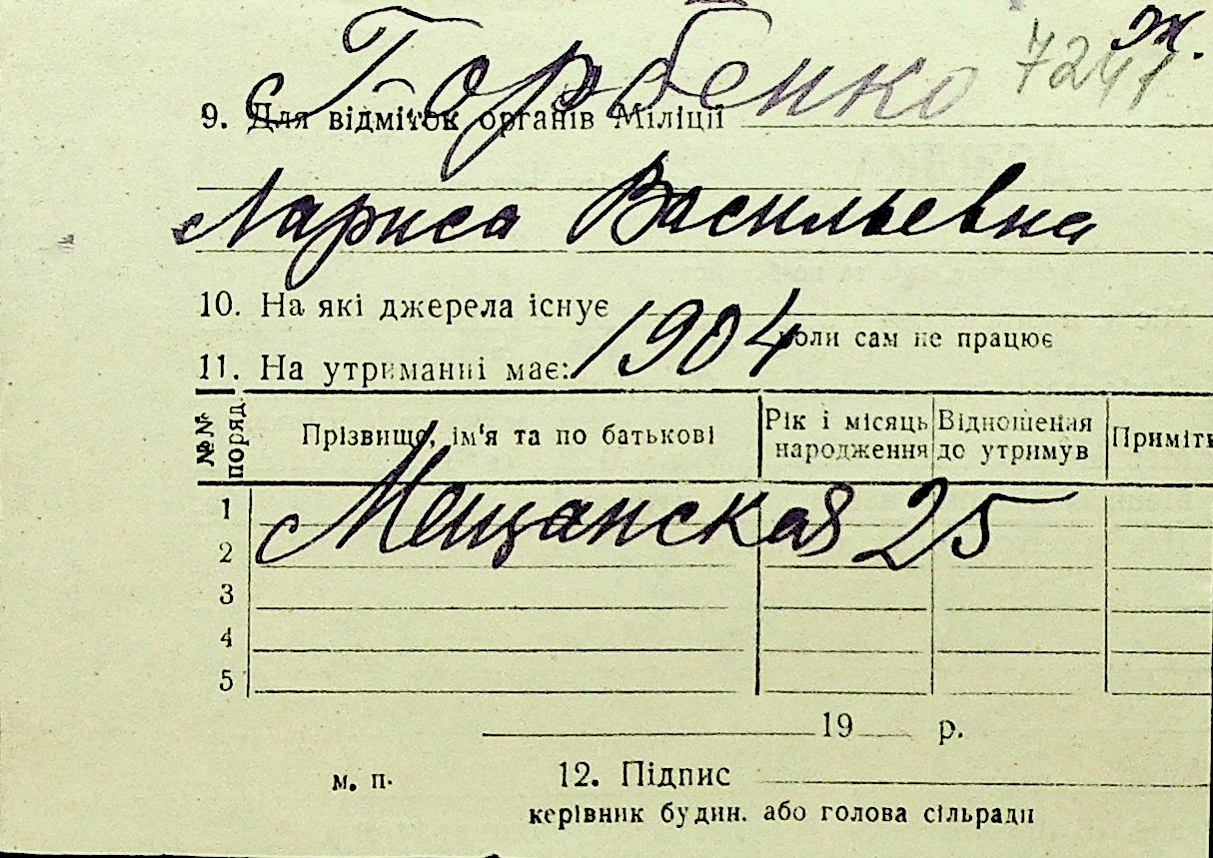 Горбенко 7241 ж.
9. Для відміток органів Міліції
Лариса Васильевна
10. На які джерела існує
коли сам не працює
1904
11. На утриманні має:
№№ поряд. Прізвище, ім'я та по батькові Рік і місяць народження Відношення до утримув Приміт
1
Мещанская 25
2
3
4
5
19 р.
м. п. 12. Підпис
керівник будин. або голова сільради